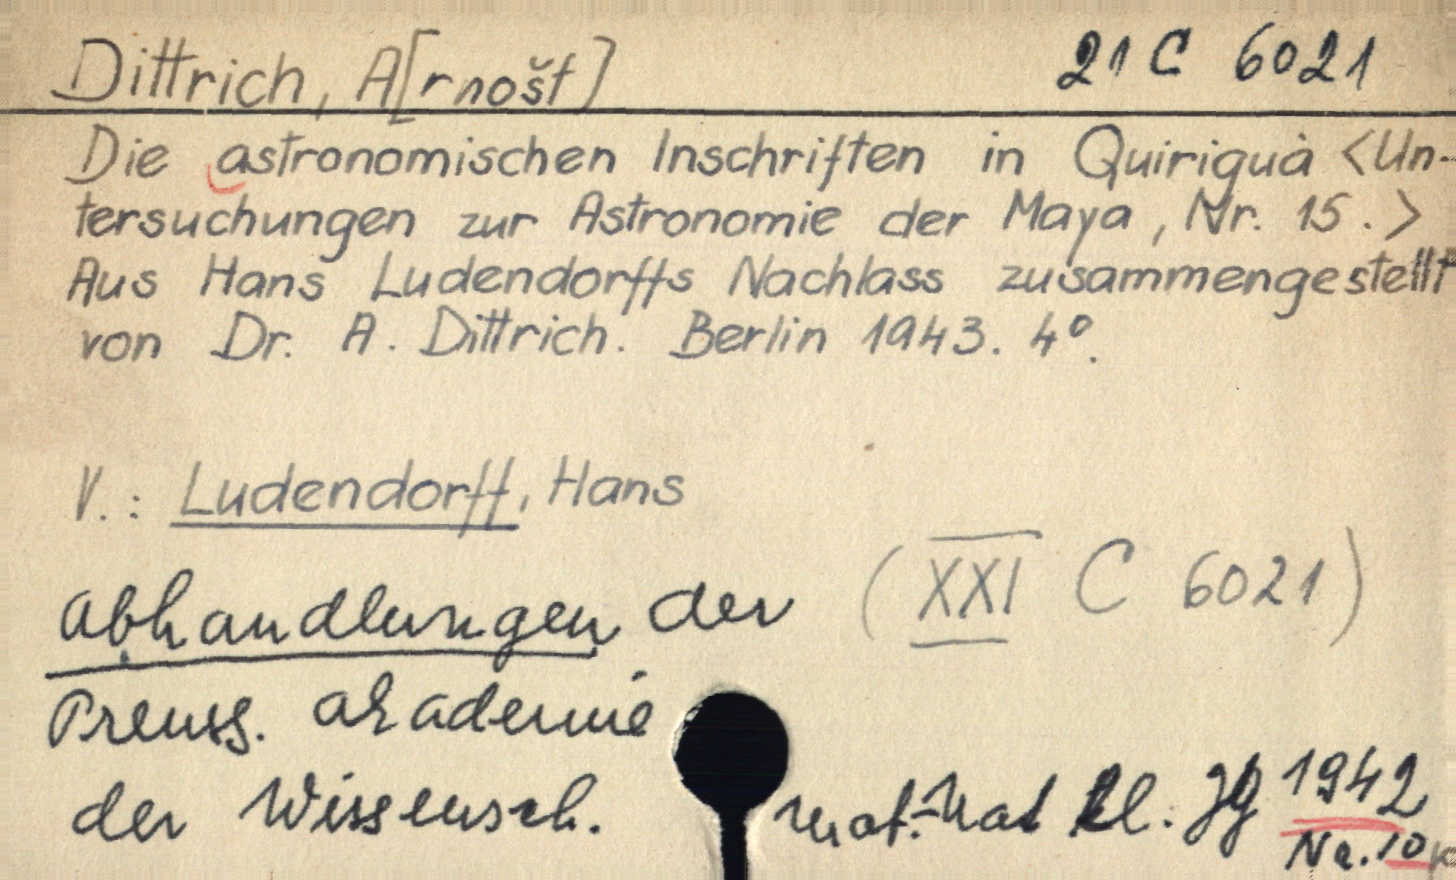 Dittrich, A[rnošt] 21 C 6021
Die astronomischen Inschriften in Quiriguà <Un-
tersuchungen zur Astronomie der Maya, Nr. 15.>
Aus Hans Ludendorffs Nachlass zusammengestellt
von Dr. A. Dittrich. Berlin 1943. 4°.
V.: Ludendorff, Hans
(XXI C 6021)
Abhandlungen der
Preuss. Akademie
der Wissensch. Mat.-Nat Kl. Jg 1942
Nr. 10